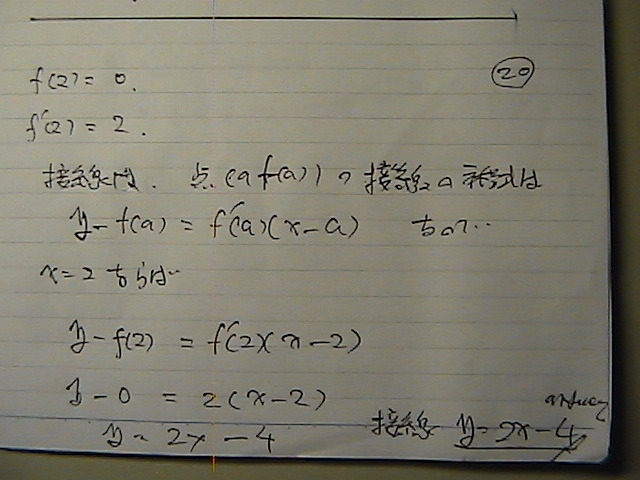 f(2) = 0.
⑳
f'(2) = 2.
接線は、点(a f(a))の接線の方程式は
y - f(a) = f'(a)(x - a) なので…
x = 2 ならば…
y - f(2) = f'(2)(x - 2)
y - 0 = 2(x - 2)
y = 2x - 4
接線 y = 2x - 4